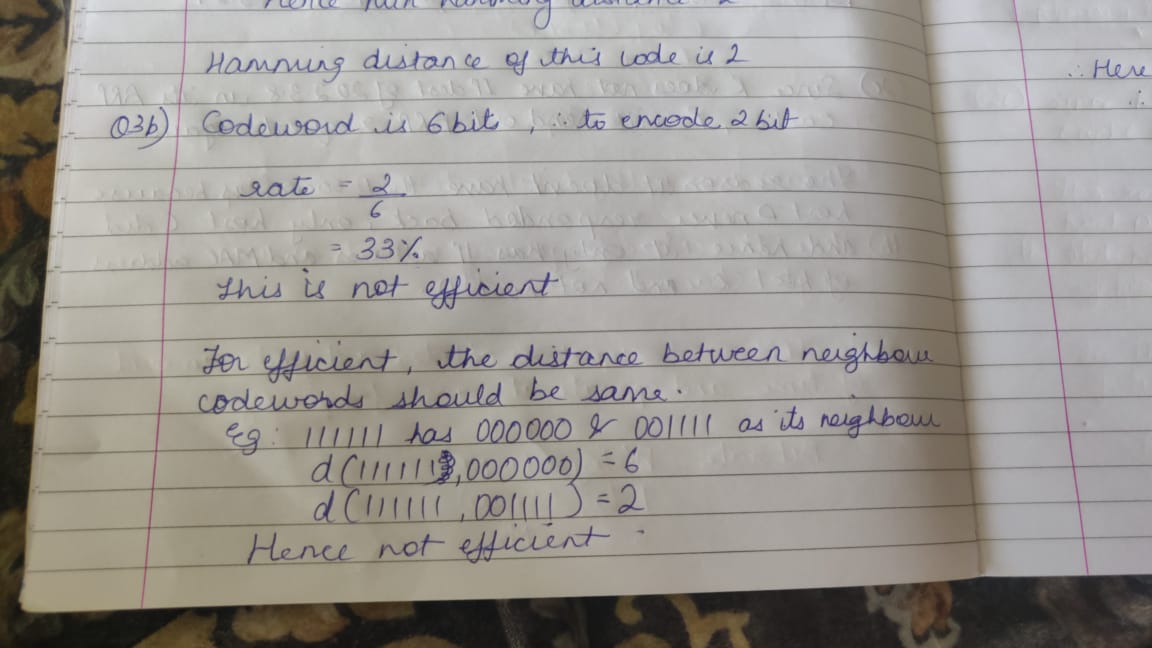 Hence min hamming distance 2
Hamming distance of this code is 2
Q3b) Codeword is 6 bit, ∴ to encode 2 bit
rate = 2/6
= 33%
This is not efficient
For efficient, the distance between neighbour
codewords should be same.
Eg: 111111 has 000000 & 001111 as its neighbour
d(111111,000000) = 6
d(111111,001111) = 2
Hence not efficient
∴ Here
∴